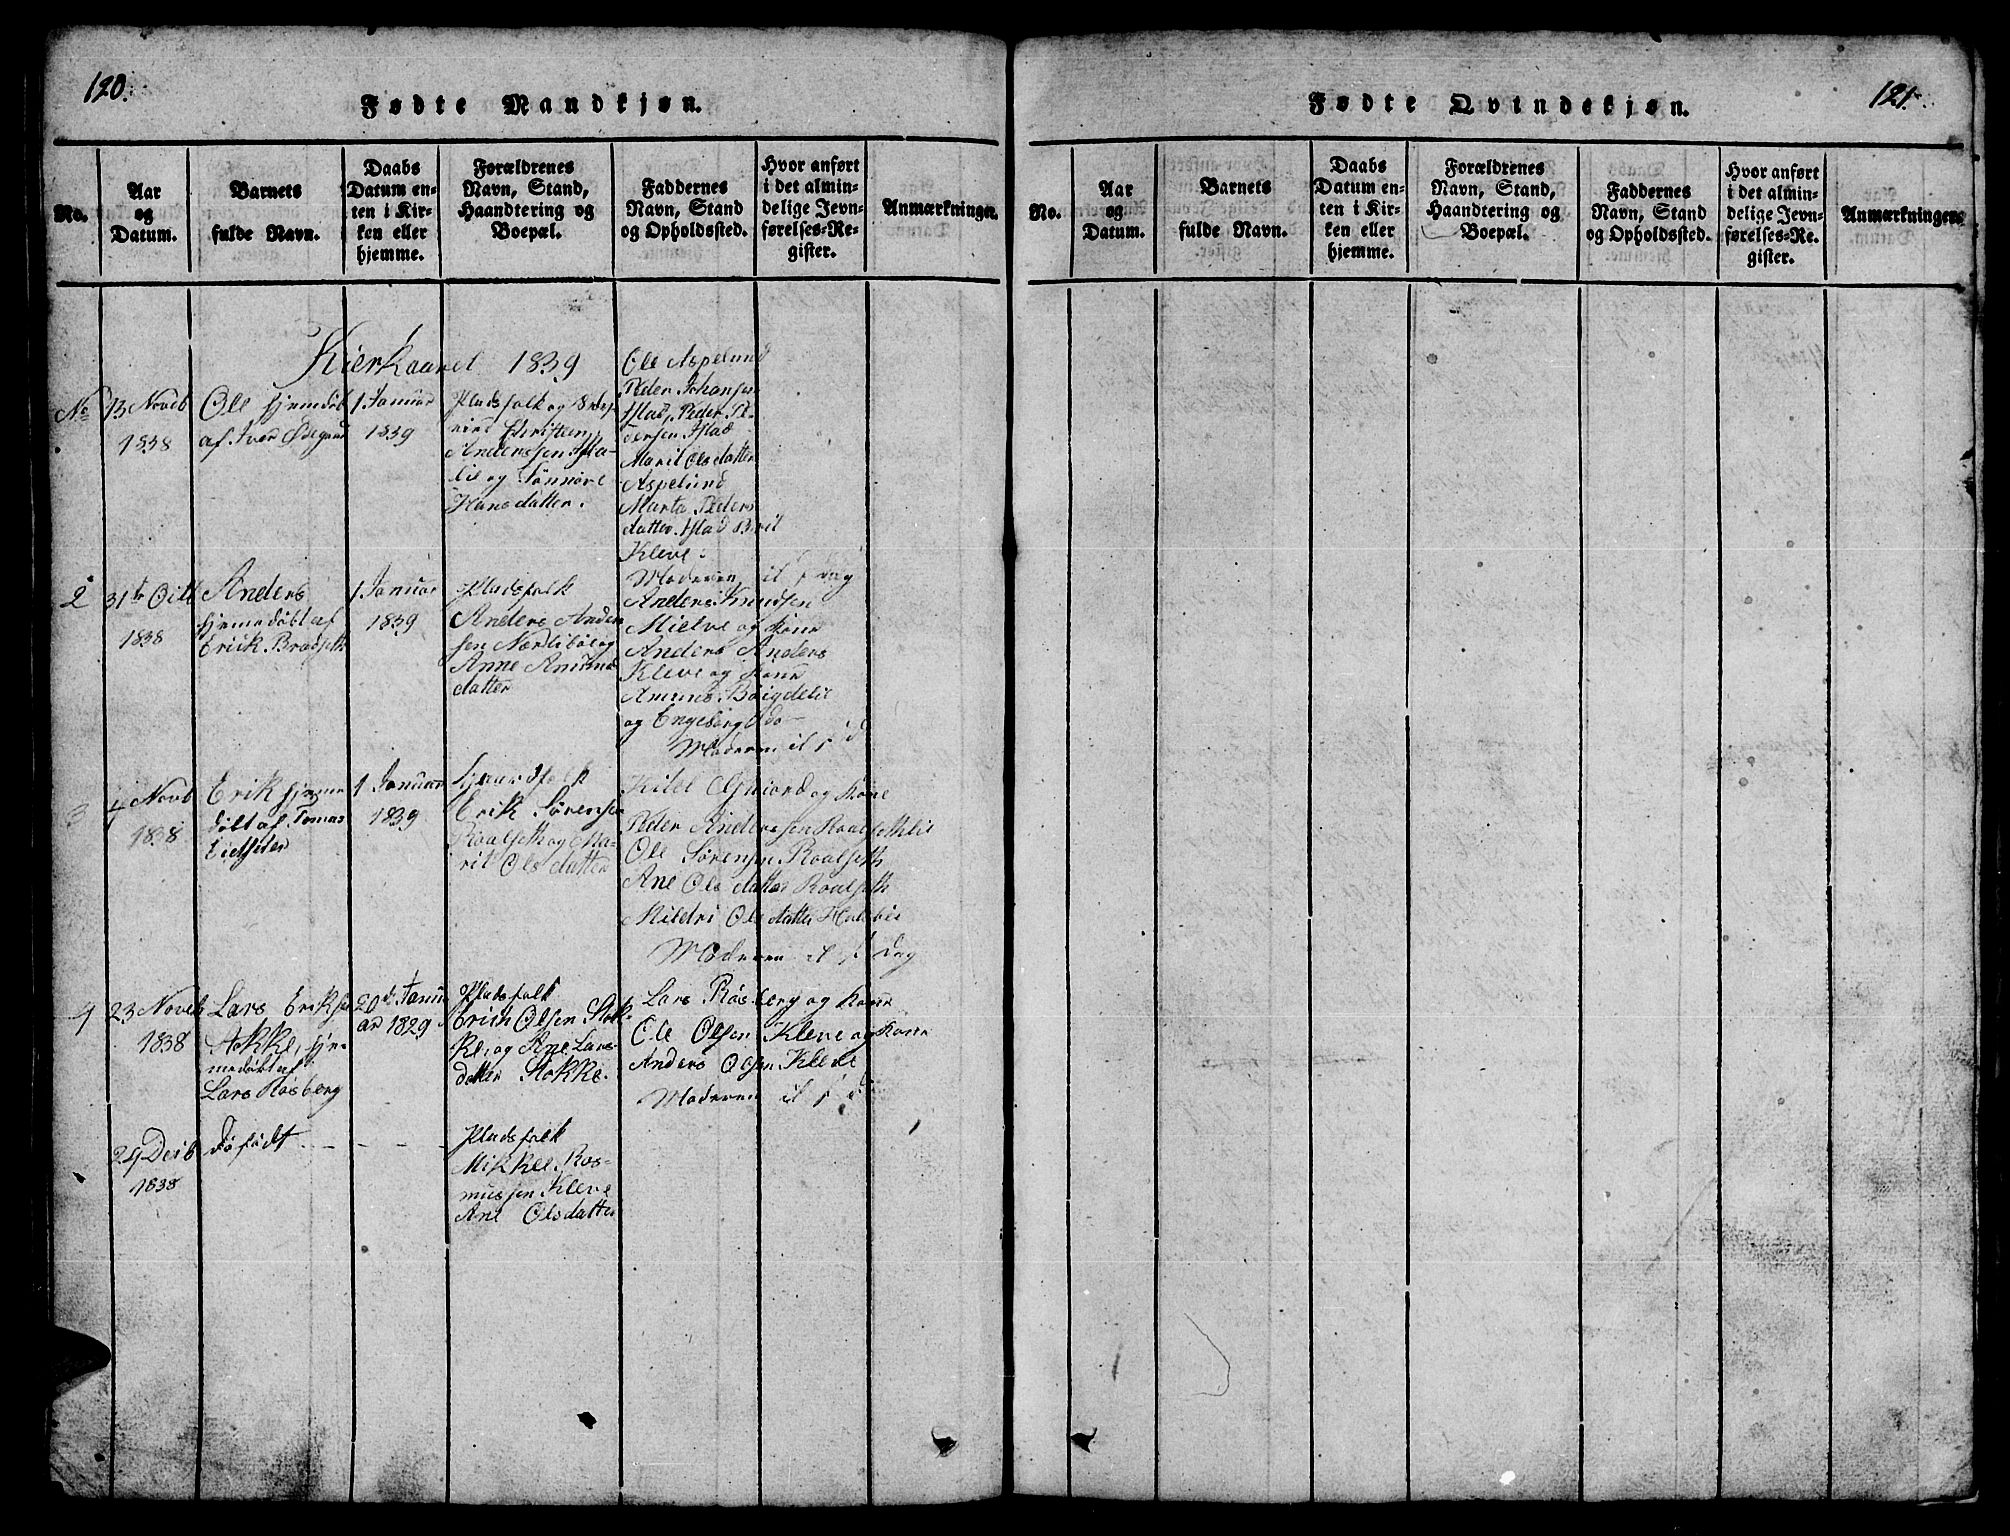 120.
Fødte Mandkjøn.
No.
Aar
og
Datum.
Barnets
fulde Navn.
Daabs
Datum en-
ten i Kir-
ken eller
hjemme.
Forældrenes
Navn, Stand,
Haandtering og
Boepæl.
Faddernes
Navn, Stand
og Opholdssted.
Hvor anført
i det almin-
delige Jevn-
førelses-Re-
gister.
Anmærkninger.
Kierkaaret 1839
No
13 Novb
1838
Ole Hjemedøbt
af Iver Ødegaard
1 Januar
1839
Pladsfolk og
Christen
Anderssen
og Sønnøve
Hansdatter.
Ole Aspelund
Peder Johansen
Istad, Peder Pe-
dersen Istad
Marit Olsdatter
Aspelund
Marta Peders
datter Istad Brit
Kleve.
Moderen il s Dag
2
31te Octb
1838
Anders
Hjemedøbt af
Erick Bradseth
1 Januar
1839
Pladsfolk
Anders Ander
sen og
Anne Amund
datter
Anders Knudsen
Mielve og Kone
Anders Anders
Kleve og Kone
og Engeborg do
Moderen il s d
3
4 Novb
1838
Erik Hjemme
døbt af Tomas
Eidssiter
1 Januar
1839
Gaardfolk
Erik Sørensen
Roalseth og Ma-
rit Olsdatter
og Kone
Peder Anderssen Roalsethlie
Ole Sørensen Roalseth
Ane Olsdatter Roalseth
Mildri Olsdatter
Moderen il s Dag
4
23 Novb
1838
Lars Eriksen
Stokke, hje-
medøbt af
Lars Røsberg
20de Janu
ar 1829
Pladsfolk
Erich Olsen Stok-
ke, og Ane Lars-
datter Stokke.
Lars Røsberg og Kone
Ole Olsen Kleve og Kone
Anders Olsen Kleve
Moderen il s d
29 Decb
1838
Døfødt
Pladsfolk
Mikkel Ras-
mussen Kleve
Ane Olsdatter
121.
Fødte Qvindekjøn.
No.
Aar
og
Datum.
Barnets
fulde Navn.
Daabs
Datum en-
ten i Kir-
ken eller
hjemme.
Forældrenes
Navn, Stand,
Haandtering og
Boepæl.
Faddernes
Navn, Stand
og Opholdssted.
Hvor anført
i det almin-
delige Jevn-
førelses-Re-
gister.
Anmærkninger.